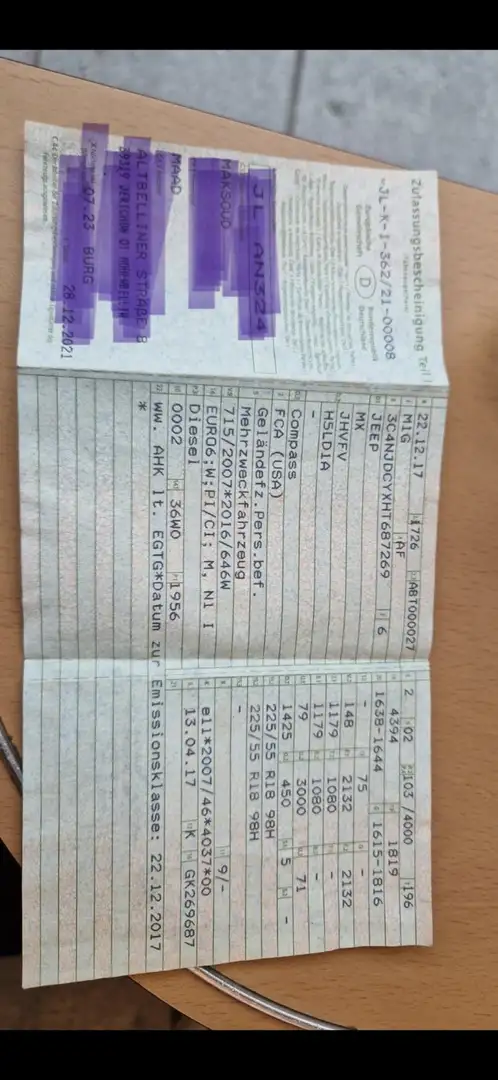 Zulassungsbescheinigung Teil I
-JL-K-1-362/21-00008
Europäische Gemeinschaft
D
Bundesrepublik Deutschland
JL AN324
MAKSOUD
MAAD
ALTBELLINER STRAßE 8
07.23 BURG
28.12.2021
22.12.17 1726 ABT000027
M1G AF
3C4NJDCYXHT687269 6
JEEP
MX
JHVFV
H5LD1A
-
Compass
FCA (USA)
Geländefz.Pers.bef.
Mehrzweckfahrzeug
715/2007*2016/646W
EURO6;W;PI/CI; M, N1 I
Diesel
0002 36W0 1956
2 02 103 /4000 196
4394 1819
1638-1644 1615-1816
- 75 -
148 2132 2132
1179 1080 -
1179 1080 -
79 3000 71
1425 450 5 -
225/55 R18 98H
225/55 R18 98H
-
9/-
e11*2007/46*4037*00
13.04.17 K GK269687
WW. AHK lt. EGTG*Datum zur Emissionsklasse: 22.12.2017
*